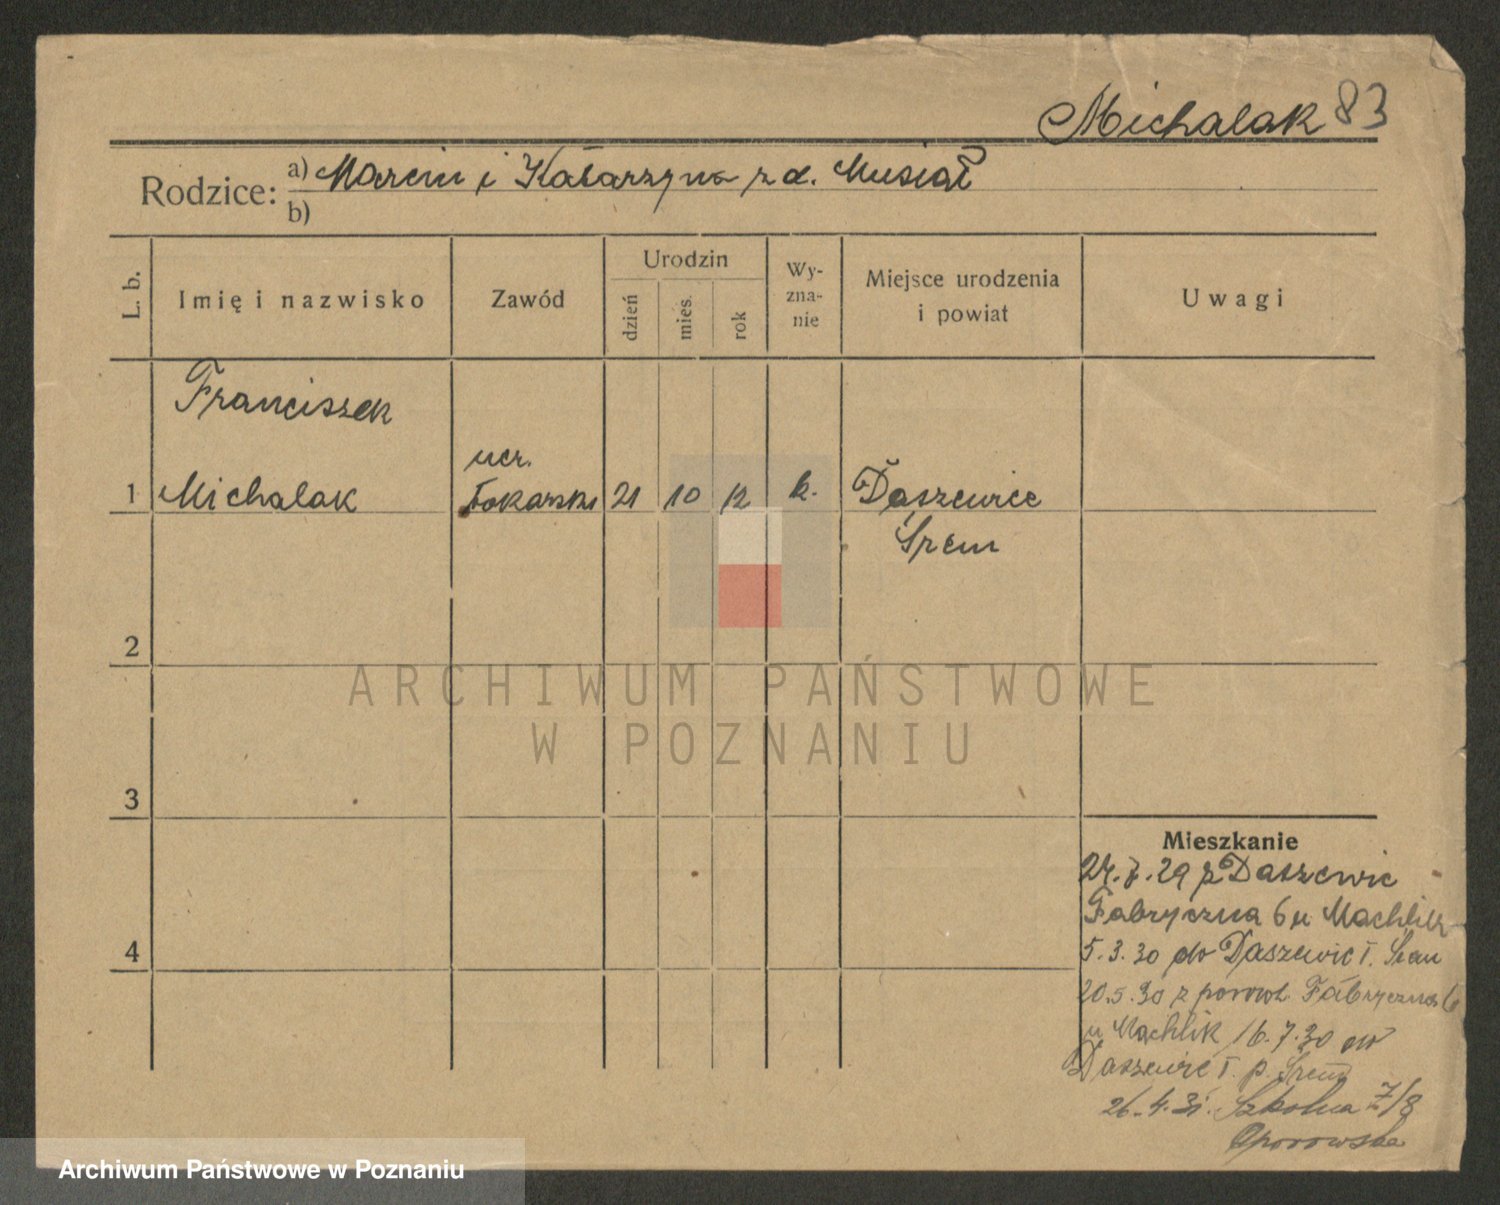 Michalak 83
Rodzice: a) Marcin i Katarzyna z d. Musiał
b)
L. b.
Imię i nazwisko
Zawód
Urodzin
dzień
mies.
rok
Wy-
zna-
nie
Miejsce urodzenia
i powiat
Uwagi
Franciszek
ucz.
1 Michalak tokarski 21 10 12 k. Daszewice
Śrem
2
ARCHIWUM PAŃSTWOWE
W POZNANIU
3
Mieszkanie
24.7.29 z Daszewic
Fabryczna 6 u Machlik
5.3.30 do Daszewic
20.5.30 z powrot. Fabryczna 6
u Machlik 16.7.30 do
Daszewic p. Śrem
26.4.31. Szkolna 7/8
Oporowska
4
Archiwum Państwowe w Poznaniu